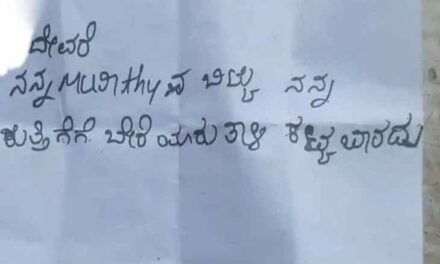 ದೇವರೆ
ನನ್ನ Murthyನ ಬಿಟ್ಟು ನನ್ನ
ಕುತ್ತಿಗೆಗೆ ಬೇರೆ ಯಾರು ತಾಳಿ ಕಟ್ಟಬಾರದು